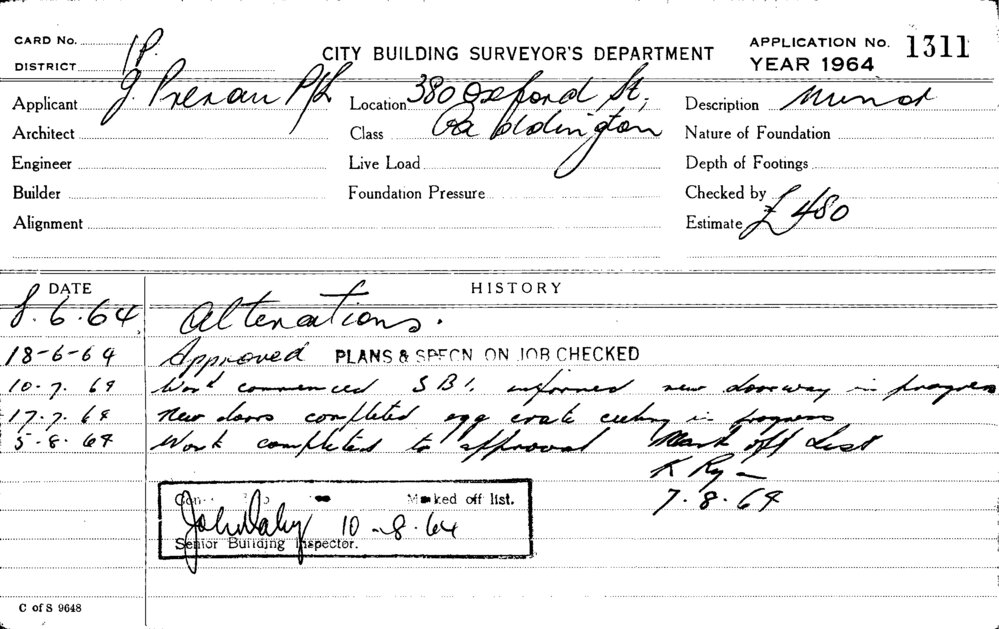 CARD No. 1P.
CITY BUILDING SURVEYOR'S DEPARTMENT
APPLICATION No. 1311
DISTRICT
YEAR 1964
Applicant J. P/L
Location 380 Oxford St,
Description Minor
Architect
Class Paddington
Nature of Foundation
Engineer
Live Load
Depth of Footings
Builder
Foundation Pressure
Checked by
Alignment
Estimate £480
DATE
HISTORY
8.6.64 Alterations.
18-6-64 Approved PLANS & SPECN ON JOB CHECKED
10.7.64 Work commenced informed new doorway in progress
17.7.64 New doors completed egg crate ceiling in progress
5.8.64 Work completed to approval Mark off List
K Ryan
7.8.64
Marked off list.
John Daly 10-8-64
Senior Building Inspector.
C of S 9648